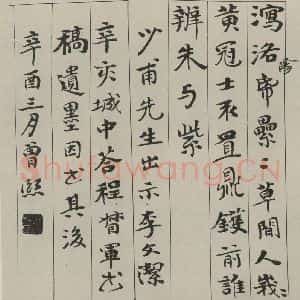 帝壘二草間人
黃冠士置鼎鑊前誰
辨朱与紫
少甫先生出示李文潔
辛亥城中答程督軍書
稿遺墨因書其後
辛酉三月曾熙
Shufawang.CN